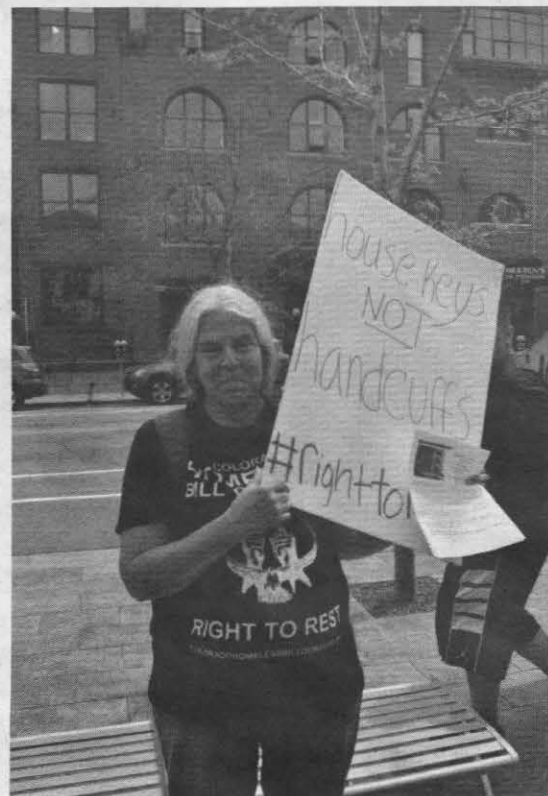 house keys
NOT
handcuffs
#right to
COLORADO
BILL
RIGHT TO REST